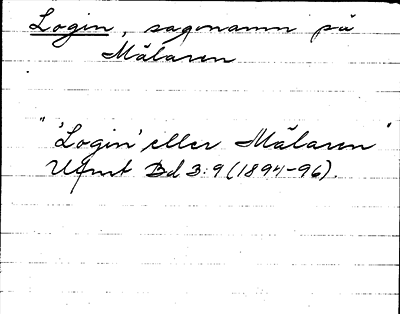 Login, sagonamn på
Mälaren
"'Login' eller Mälaren"
Ufmt Bd 3:9 (1894-96).